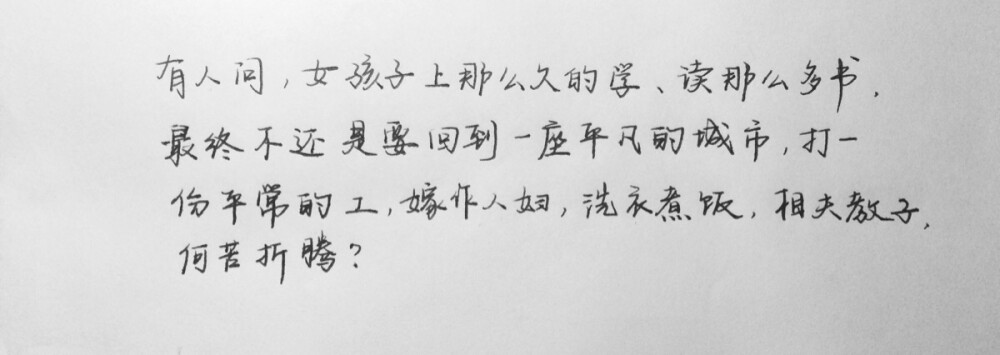 有人问，女孩子上那么久的学、读那么多书，
最终不还是要回到一座平凡的城市，打一
份平常的工，嫁作人妇，洗衣煮饭，相夫教子，
何苦折腾？